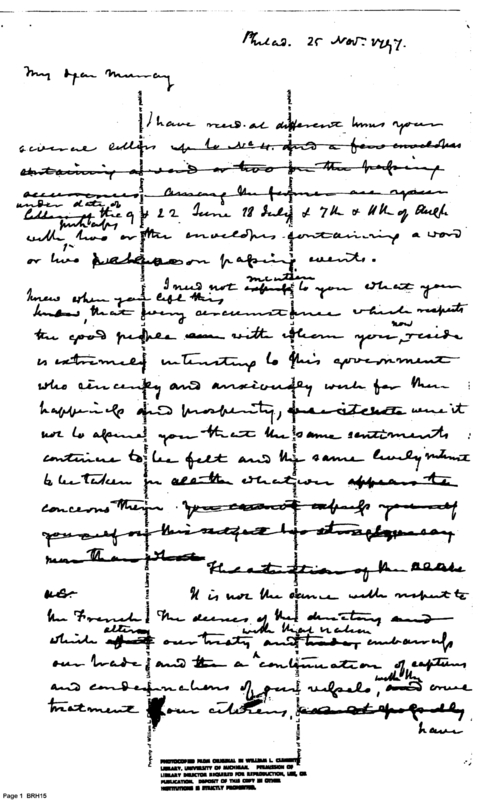 Philad. 25 Nov. 1797.
My dear Murray
I have recd. at different times your
several letters up to No 4. and a few envelopes
containing a word or two on the passing
occurrences. Among the former are your
under date of
letters of the 9 & 22 June 18 July & 7th &
perhaps
with two or three envelopes containing a word
or two on passing events.
mention
I need not express to you what you
knew when you left this
that every circumstance which respects
now
the good people with whom you reside
is extremely interesting to this government
who sincerely and anxiously wish for their
happiness and prosperity, were it
not to assure you that the same sentiments
continue to be felt and the same lively interest
to be taken in all that whatever appears to
concerns them. You cannot express yourself
yourself on this subject too strongly or say
more than what
The situation of the
It is not the same with respect to
the French. The decrees of the directory and
alter with that nation
which affect our treaty and trade, embarrass
our trade, and the a continuation of captures
with the
and condemnations of our vessels, and
treatment of our citizens,
have
Property of William L. Clements Library
PHOTOCOPIED FROM ORIGINAL IN WILLIAM L. CLEMENTS
LIBRARY, UNIVERSITY OF MICHIGAN. PERMISSION OF
LIBRARY DIRECTOR REQUIRED FOR REPRODUCTION, USE, OR
PUBLICATION. DEPOSIT OF THIS COPY IN OTHER
INSTITUTIONS IS STRICTLY PROHIBITED.
Page 1 BRH15